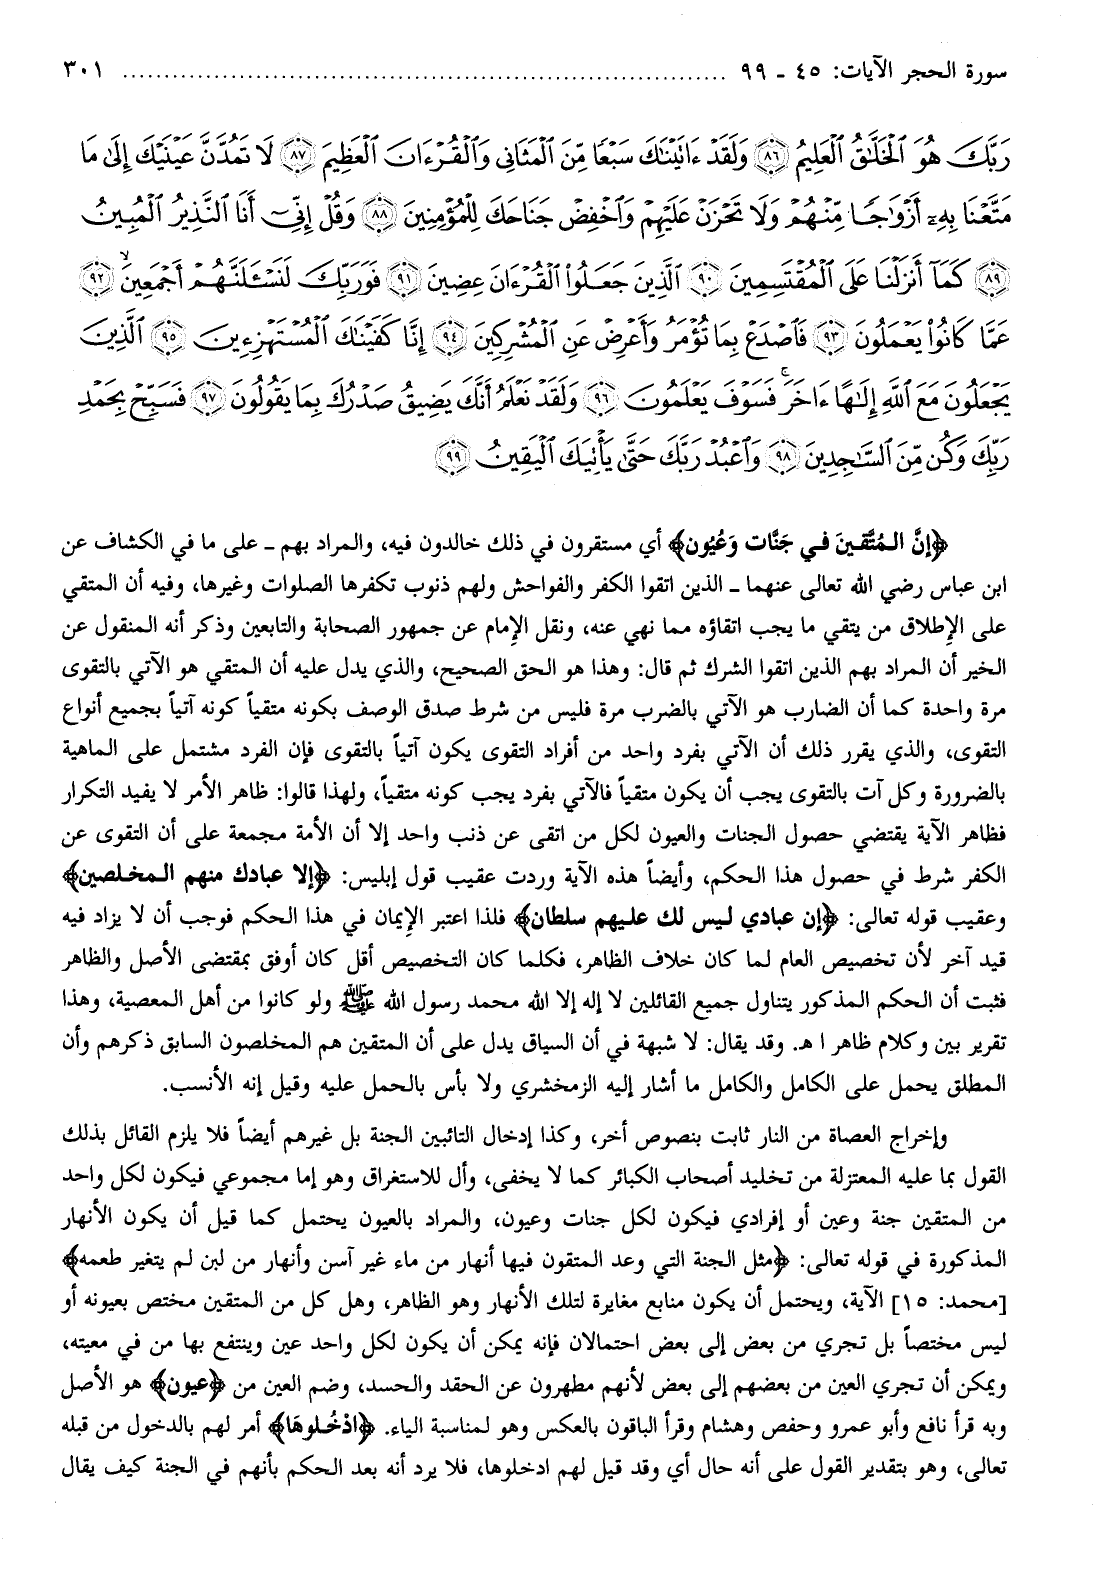 سورة الحجر الآيات: ٤٥ ـ ٩٩ ........................................................................ ٣٠١
رَبَّكَ هُوَ ٱلْخَلَّٰقُ ٱلْعَلِيمُ ﴿٨٦﴾ وَلَقَدْ ءَاتَيْنَٰكَ سَبْعًا مِّنَ ٱلْمَثَانِى وَٱلْقُرْءَانَ ٱلْعَظِيمَ ﴿٨٧﴾ لَا تَمُدَّنَّ عَيْنَيْكَ إِلَىٰ مَا
مَتَّعْنَا بِهِۦٓ أَزْوَٰجًا مِّنْهُمْ وَلَا تَحْزَنْ عَلَيْهِمْ وَٱخْفِضْ جَنَاحَكَ لِلْمُؤْمِنِينَ ﴿٨٨﴾ وَقُلْ إِنِّىٓ أَنَا ٱلنَّذِيرُ ٱلْمُبِينُ
﴿٨٩﴾ كَمَآ أَنزَلْنَا عَلَى ٱلْمُقْتَسِمِينَ ﴿٩٠﴾ ٱلَّذِينَ جَعَلُوا۟ ٱلْقُرْءَانَ عِضِينَ ﴿٩١﴾ فَوَرَبِّكَ لَنَسْـَٔلَنَّهُمْ أَجْمَعِينَ ﴿٩٢﴾
عَمَّا كَانُوا۟ يَعْمَلُونَ ﴿٩٣﴾ فَٱصْدَعْ بِمَا تُؤْمَرُ وَأَعْرِضْ عَنِ ٱلْمُشْرِكِينَ ﴿٩٤﴾ إِنَّا كَفَيْنَٰكَ ٱلْمُسْتَهْزِءِينَ ﴿٩٥﴾ ٱلَّذِينَ
يَجْعَلُونَ مَعَ ٱللَّهِ إِلَٰهًا ءَاخَرَ ۚ فَسَوْفَ يَعْلَمُونَ ﴿٩٦﴾ وَلَقَدْ نَعْلَمُ أَنَّكَ يَضِيقُ صَدْرُكَ بِمَا يَقُولُونَ ﴿٩٧﴾ فَسَبِّحْ بِحَمْدِ
رَبِّكَ وَكُن مِّنَ ٱلسَّٰجِدِينَ ﴿٩٨﴾ وَٱعْبُدْ رَبَّكَ حَتَّىٰ يَأْتِيَكَ ٱلْيَقِينُ ﴿٩٩﴾
﴿إنَّ المُتَّقينَ في جَنَّات وَعُيُون﴾ أي مستقرون في ذلك خالدون فيه، والمراد بهم ـ على ما في الكشاف عن
ابن عباس رضي الله تعالى عنهما ـ الذين اتقوا الكفر والفواحش ولهم ذنوب تكفرها الصلوات وغيرها، وفيه أن المتقي
على الإطلاق من يتقي ما يجب اتقاؤه مما نهي عنه، ونقل الإمام عن جمهور الصحابة والتابعين وذكر أنه المنقول عن
الخبر أن المراد بهم الذين اتقوا الشرك ثم قال: وهذا هو الحق الصحيح، والذي يدل عليه أن المتقي هو الآتي بالتقوى
مرة واحدة كما أن الضارب هو الآتي بالضرب مرة فليس من شرط صدق الوصف بكونه متقياً كونه آتياً بجميع أنواع
التقوى، والذي يقرر ذلك أن الآتي بفرد واحد من أفراد التقوى يكون آتياً بالتقوى فإن الفرد مشتمل على الماهية
بالضرورة وكل آت بالتقوى يجب أن يكون متقياً فالآتي بفرد يجب كونه متقياً، ولهذا قالوا: ظاهر الأمر لا يفيد التكرار
فظاهر الآية يقتضي حصول الجنات والعيون لكل من اتقى عن ذنب واحد إلا أن الأمة مجمعة على أن التقوى عن
الكفر شرط في حصول هذا الحكم، وأيضاً هذه الآية وردت عقيب قول إبليس: ﴿إلا عبادك منهم المخلصين﴾
وعقيب قوله تعالى: ﴿إن عبادي ليس لك عليهم سلطان﴾ فلذا اعتبر الإيمان في هذا الحكم فوجب أن لا يزاد فيه
قيد آخر لأن تخصيص العام لما كان خلاف الظاهر، فكلما كان التخصيص أقل كان أوفق بمقتضى الأصل والظاهر
فثبت أن الحكم المذكور يتناول جميع القائلين لا إله إلا الله محمد رسول الله ﷺ ولو كانوا من أهل المعصية، وهذا
تقرير بين وكلام ظاهر ا هـ. وقد يقال: لا شبهة في أن السياق يدل على أن المتقين هم المخلصون السابق ذكرهم وأن
المطلق يحمل على الكامل والكامل ما أشار إليه الزمخشري ولا بأس بالحمل عليه وقيل إنه الأنسب.
وإخراج العصاة من النار ثابت بنصوص أخر، وكذا إدخال التائبين الجنة بل غيرهم أيضاً فلا يلزم القائل بذلك
القول بما عليه المعتزلة من تخليد أصحاب الكبائر كما لا يخفى، وأل للاستغراق وهو إما مجموعي فيكون لكل واحد
من المتقين جنة وعين أو إفرادي فيكون لكل جنات وعيون، والمراد بالعيون يحتمل كما قيل أن يكون الأنهار
المذكورة في قوله تعالى: ﴿مثل الجنة التي وعد المتقون فيها أنهار من ماء غير آسن وأنهار من لبن لم يتغير طعمه﴾
[محمد: ١٥] الآية، ويحتمل أن يكون منابع مغايرة لتلك الأنهار وهو الظاهر، وهل كل من المتقين مختص بعيونه أو
ليس مختصاً بل تجري من بعض إلى بعض احتمالان فإنه يمكن أن يكون لكل واحد عين وينتفع بها من في معيته،
ويمكن أن تجري العين من بعضهم إلى بعض لأنهم مطهرون عن الحقد والحسد، وضم العين من ﴿عيون﴾ هو الأصل
وبه قرأ نافع وأبو عمرو وحفص وهشام وقرأ الباقون بالعكس وهو لمناسبة الياء. ﴿ادْخُلوهَا﴾ أمر لهم بالدخول من قبله
تعالى، وهو بتقدير القول على أنه حال أي وقد قيل لهم ادخلوها، فلا يرد أنه بعد الحكم بأنهم في الجنة كيف يقال